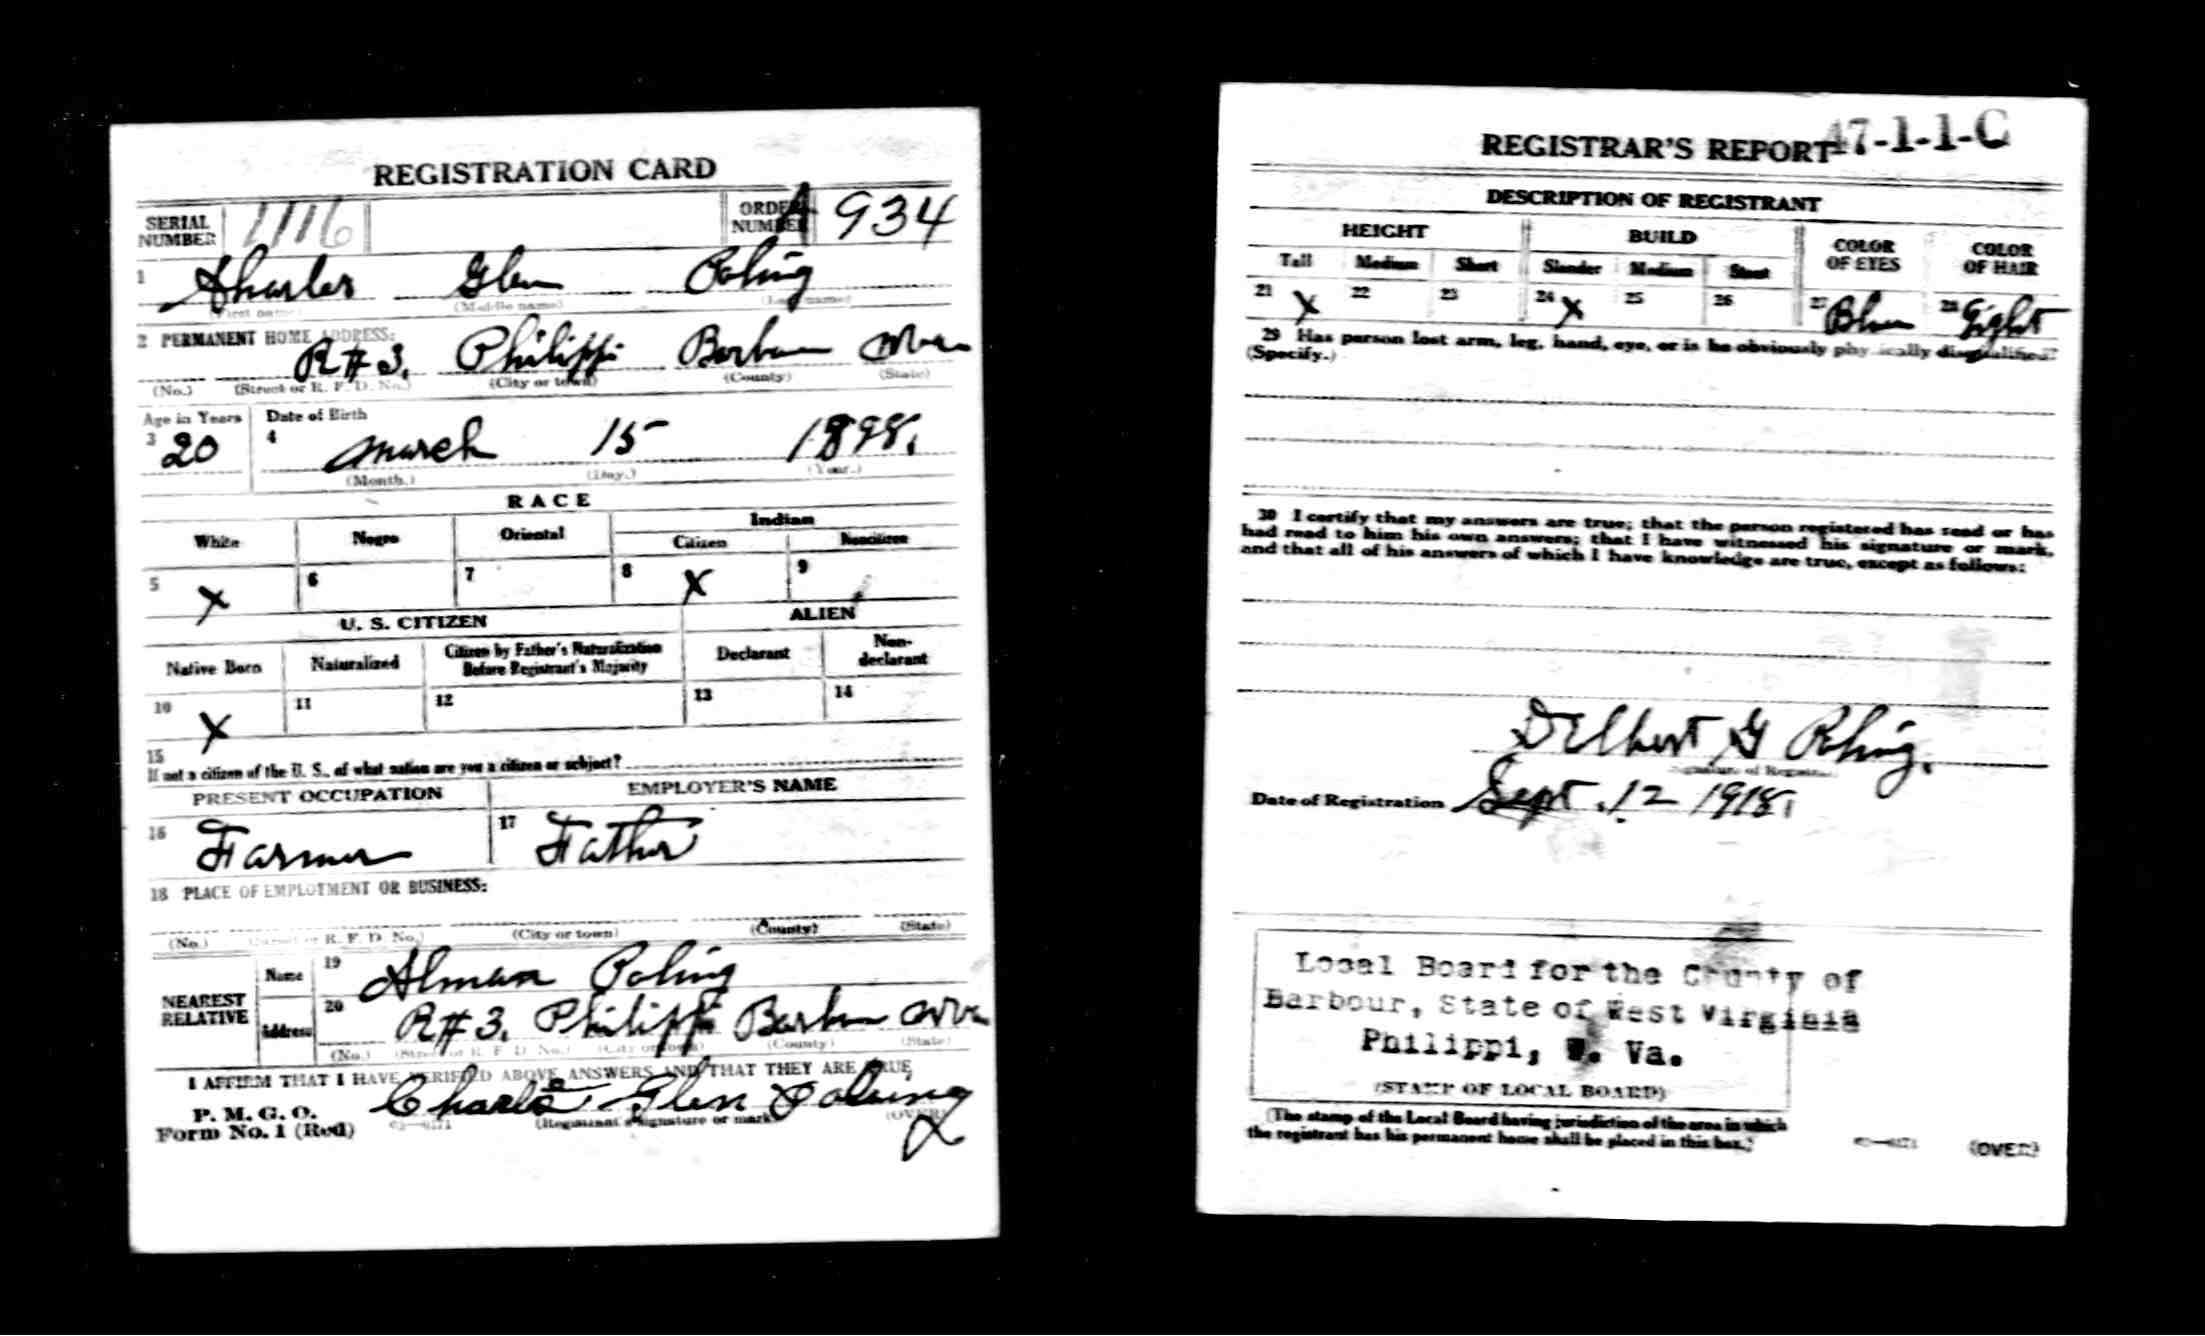 REGISTRATION CARD
SERIAL NUMBER 1116 ORDER NUMBER A 934
1 Charles Glen Poling
(First name) (Middle name) (Last name)
2 PERMANENT HOME ADDRESS:
R#3, Philippi Barbour W Va
(No.) (Street or R. F. D. No.) (City or town) (County) (State)
Age in Years Date of Birth
3 20 4 March 15 1898.
(Month.) (Day.) (Year.)
RACE
White Negro Oriental Indian
Citizen Noncitizen
5 X 6 7 8 X 9
U. S. CITIZEN ALIEN
Native Born Naturalized Citizen by Father's Naturalization Before Registrant's Majority Declarant Non-declarant
10 X 11 12 13 14
15
If not a citizen of the U. S., of what nation are you a citizen or subject?
PRESENT OCCUPATION EMPLOYER'S NAME
16 Farmer 17 Father
18 PLACE OF EMPLOYMENT OR BUSINESS:
(No.) (Street or R. F. D. No.) (City or town) (County) (State)
NEAREST RELATIVE Name 19 Alman Poling
Address 20 R#3, Philippi Barbour W Va
(No.) (Street or R. F. D. No.) (City or town) (County) (State)
I AFFIRM THAT I HAVE VERIFIED ABOVE ANSWERS AND THAT THEY ARE TRUE
P. M. G. O.
Form No. 1 (Red) Charles Glen Poling
03—6171 (Registrant's signature or mark) (OVER)
REGISTRAR'S REPORT 47-1-1-C
DESCRIPTION OF REGISTRANT
HEIGHT BUILD COLOR OF EYES COLOR OF HAIR
Tall Medium Short Slender Medium Stout
21 X 22 23 24 X 25 26 27 Blue 28 Light
29 Has person lost arm, leg, hand, eye, or is he obviously physically disqualified?
(Specify.)
30 I certify that my answers are true; that the person registered has read or has
had read to him his own answers; that I have witnessed his signature or mark,
and that all of his answers of which I have knowledge are true, except as follows:
Dilbert G Poling.
(Signature of Registrar)
Date of Registration Sept. 12 1918.
Local Board for the County of
Barbour, State of West Virginia
Philippi, W. Va.
(STAMP OF LOCAL BOARD)
(The stamp of the Local Board having jurisdiction of the area in which
the registrant has his permanent home shall be placed in this box.)
03—6171 (OVER)